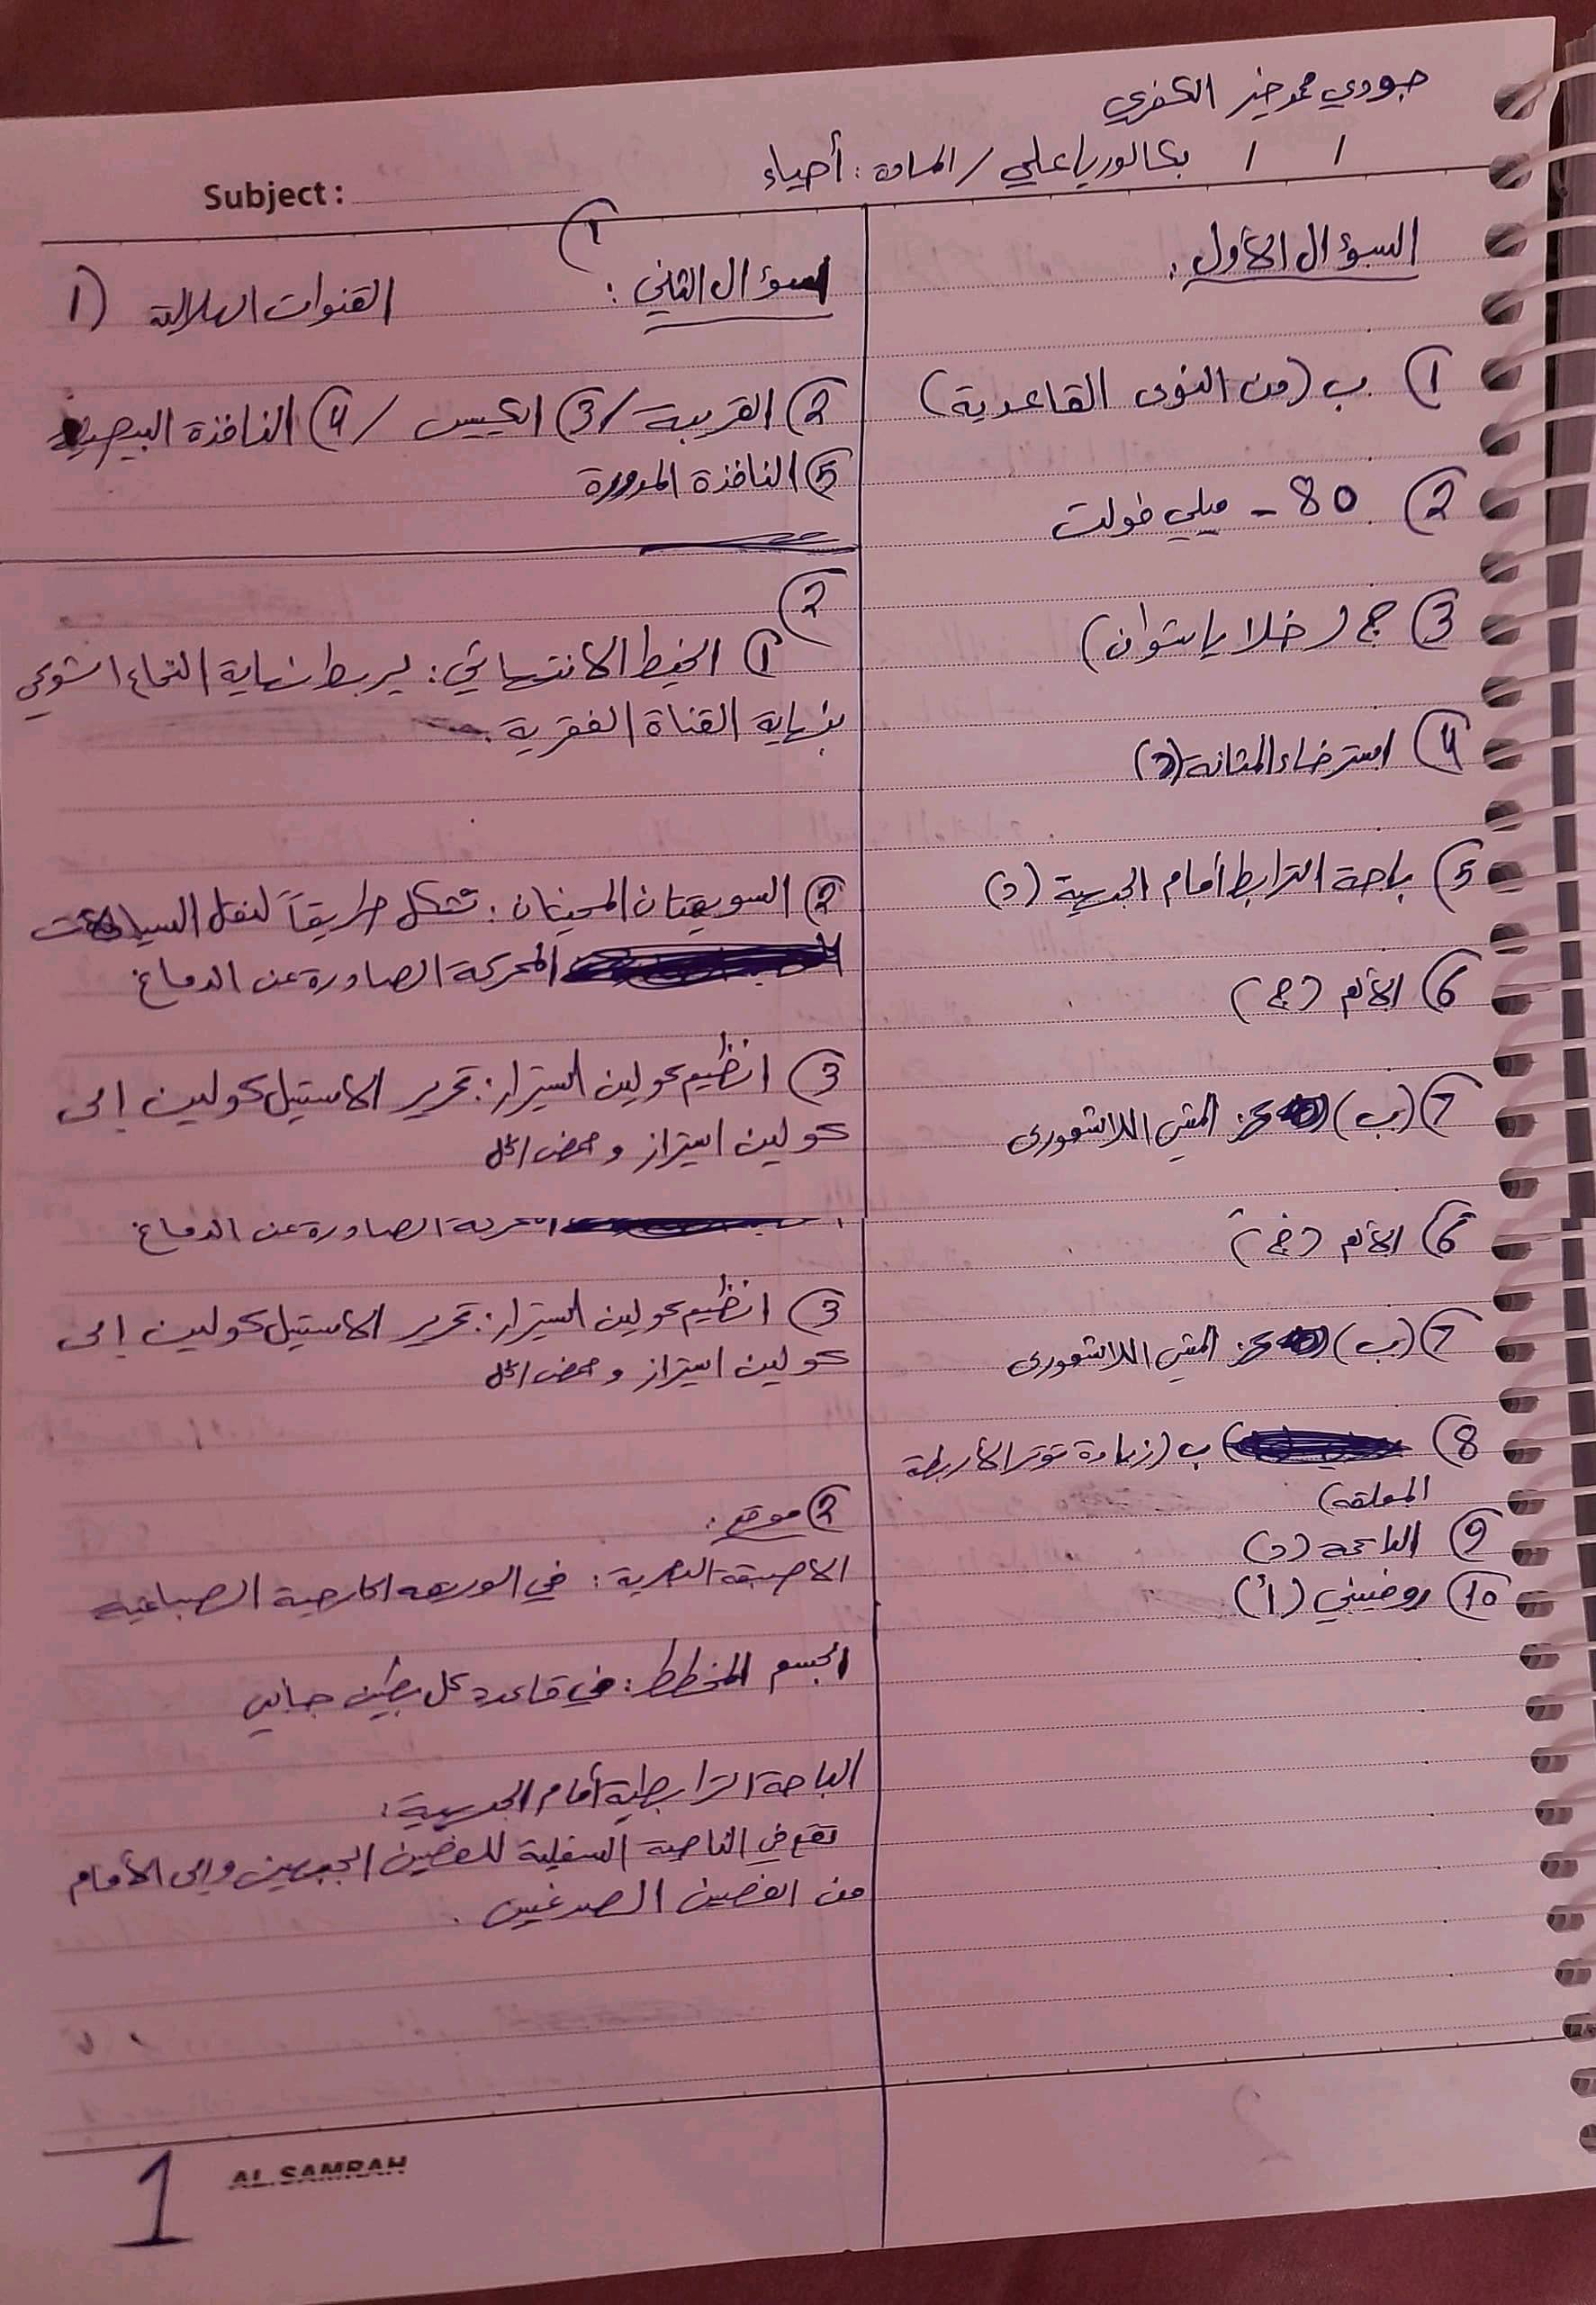 جودي محمد خير الكفري
/ / بكالوريا علمي / المادة : أحياء
Subject :
السؤال الأول :
1) ب (من النوى القاعدية)
2) 80 - ميلي فولت
3) ج (خلايا شوان)
4) استرخاء المثانة (د)
5) باحة الترابط أمام الجبهية (د)
6) الألم (ج)
7) (ب) المشي اللاشعوري
6) الألم (ج)
7) (ب) المشي اللاشعوري
8) ب (زيادة توتر الأربطة
المعلقة)
9) (د)
10) روضبني (أ)
1)
السؤال الثاني : 1) القنوات الهلالية
2) القريبة / 3) الكييس / 4) النافذة البيضية
5) النافذة المدورة
2)
1) الخيط الانتهائي : يربط نهاية النخاع الشوكي
بنهاية القناة الفقرية .
2) السويقتان المخيتان : تشكل طريقاً لنقل السيالات
المحركة الصادرة عن الدماغ
3) انظيم كولين استيراز : تحرير الاستيل كولين إلى
كولين استيراز وحمض الخل
المحركة الصادرة عن الدماغ
3) انظيم كولين استيراز : تحرير الاستيل كولين إلى
كولين استيراز وحمض الخل
2) موقع :
الاصبغة البصرية : في الوريقة الخارجية الصباغية
الجسم المخطط : في قاعدة كل بطين جانبي
الباحة الترابطية أمام الجبهية :
تقع في الناحية السفلية للفصين الجبهيين وإلى الأمام
من الفصين الصدغيين .
1
AL.SAMRAH